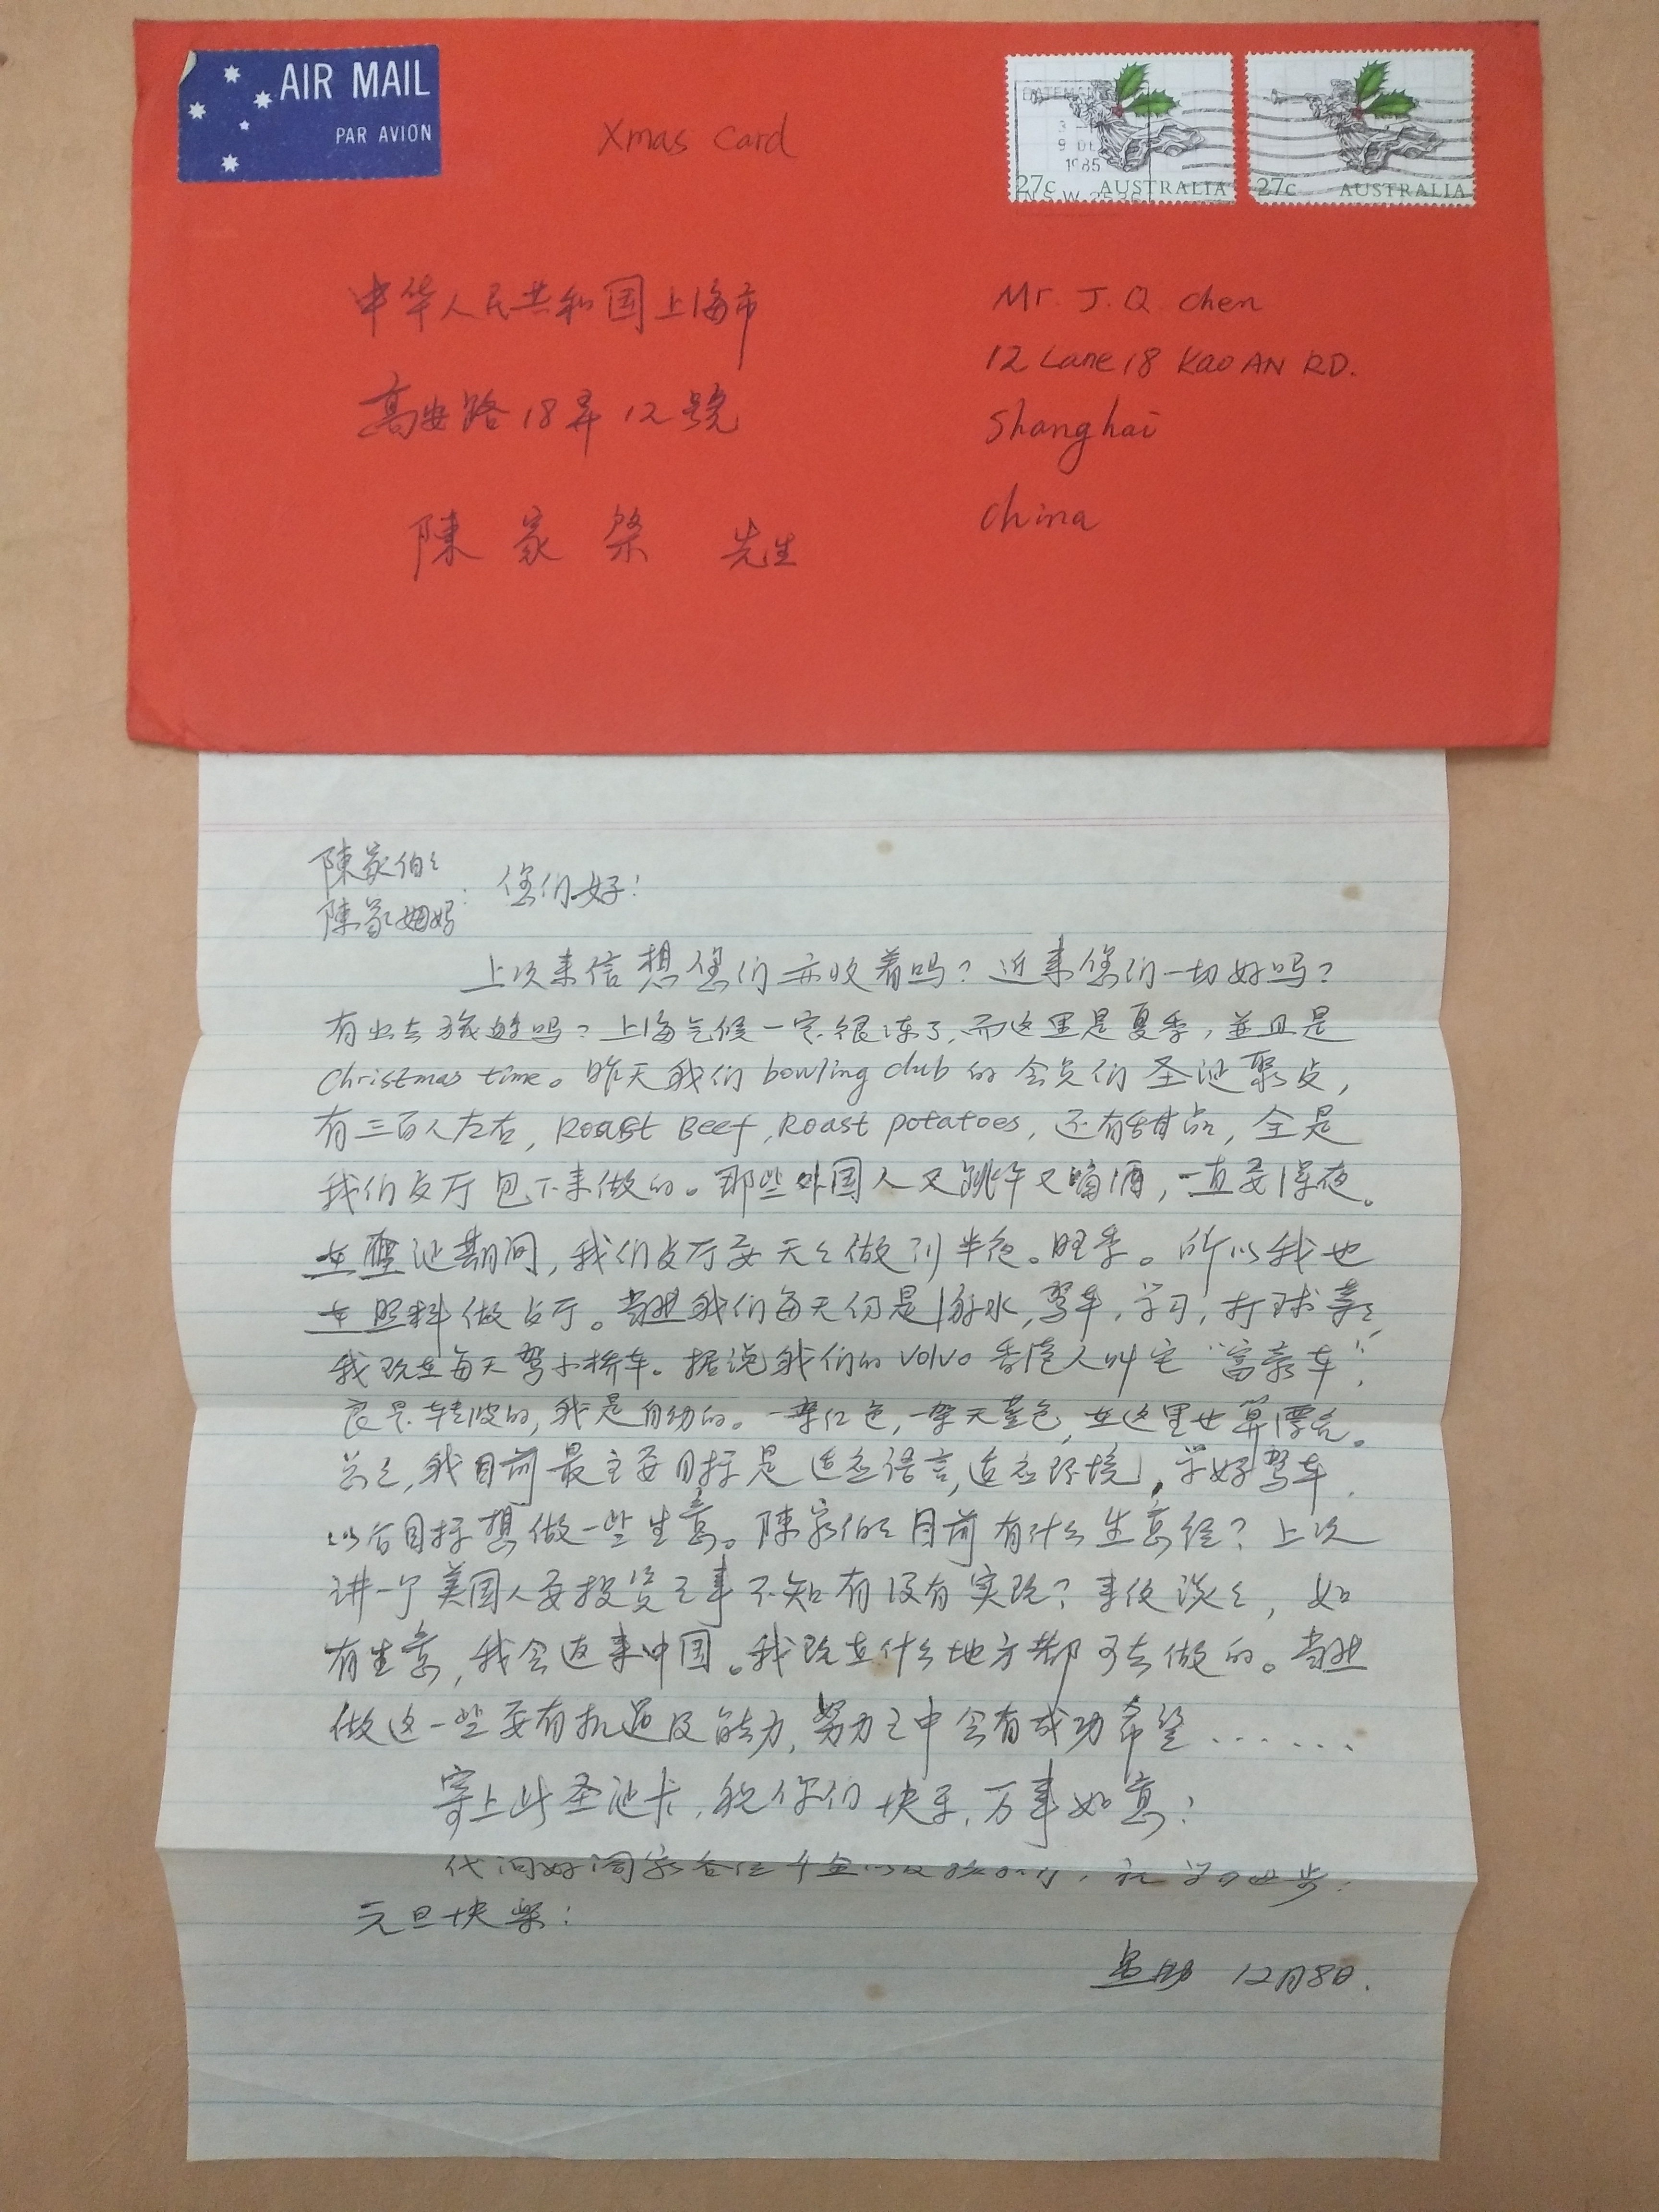 AIR MAIL
PAR AVION
Xmas Card
9 DE
1985
27c AUSTRALIA
N.S.W. 2536
27c AUSTRALIA
中华人民共和国上海市
高安路18弄12號
陳家榮 先生
Mr. J. Q Chen
12 Lane 18 Kao AN RD.
Shanghai
China
陳家伯々
陳家姆妈: 您们好!
上次来信想您们亦收着吗?近来您们一切好吗?
有出去旅遊吗?上海气候一定很冻了,而这里是夏季,並且是
Christmas time。昨天我们bowling club的会员们圣诞聚歺,
有三百人左右,Roast Beef,Roast potatoes,还有甜品,全是
我们歺厅包下来做的。那些外国人又跳午又喝酒,一直要深夜。
在聖诞期间,我们歺厅要天天做到半夜。旺季。所以我也
在照料做歺厅。当然我们每天仍是游水,驾车,学习,打球等々
我现在每天驾小桥车。据说我们的Volvo香港人叫它“富豪车”,
是自动的。一架红色,一架天蓝色,在这里也算漂亮。
总之,我目前最主要目标是适应语言,适应环境,学好驾车,
以后目标想做一些生意。陳家伯々目前有什么生意经?上次
讲一个美国人要投资之事不知有没有实现?来信谈々,如
有生意,我会返来中国。我现在什么地方都可去做的。当然
做这一些要有机遇及能力,努力之中会有成功希望......
寄上此圣诞卡,祝你们快乐,万事如意!
代问好阖家各位千金以及,祝学习进步!
元旦快樂!
12月8日.